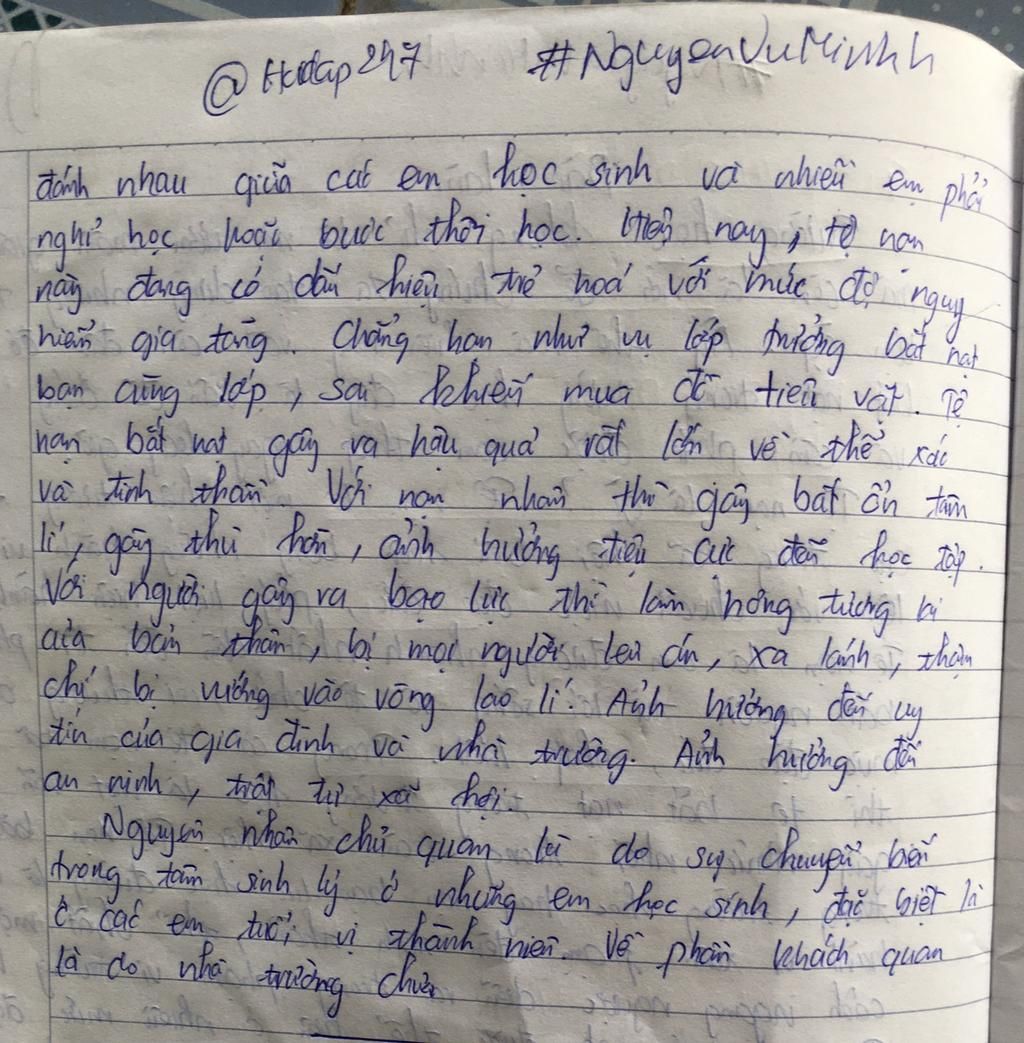 @Hoidap247 #NguyenVuMinhh
đánh nhau giữa các em học sinh và nhiều em phải
nghỉ học hoặc buộc thôi học. Hiện nay, tệ nạn
này đang có dấu hiệu trẻ hoá với mức độ nguy
hiểm gia tăng. Chẳng hạn như vụ lớp trưởng bắt nạt
bạn cùng lớp, sai khiến mua đồ tiền vặt. Tệ
nạn bắt nạt gây ra hậu quả rất lớn về thể xác
và tinh thần. Với nạn nhân thì gây bất ổn tâm
lí, gây thù hằn, ảnh hưởng tiêu cực đến học tập.
Với người gây ra bạo lực thì làm hỏng tương lai
của bản thân, bị mọi người lên án, xa lánh, thậm
chí bị vướng vào vòng lao lí. Ảnh hưởng đến uy
tín của gia đình và nhà trường. Ảnh hưởng đến
an ninh, trật tự xã hội.
Nguyên nhân chủ quan là do sự chuyển biến
trong tâm sinh lý ở những em học sinh, đặc biệt là
ở các em tuổi vị thành niên. Về phần khách quan
là do nhà trường chưa